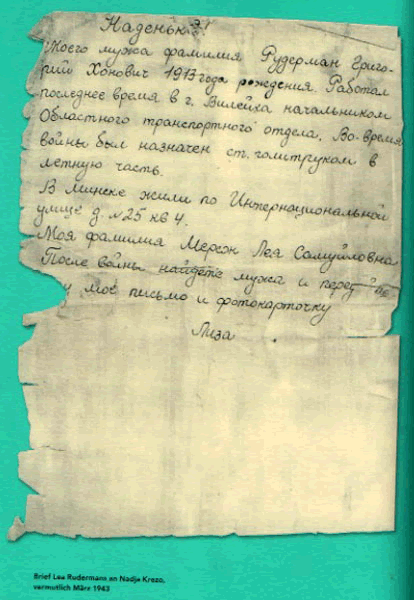 Наденька!
Моего мужа фамилия Рудерман Григо-
рий Хонович 1913 года рождения. Работал
последнее время в г. Вилейка начальником
Областного транспортного отдела. Во время
войны был назначен ст. политруком в
летную часть.
В Минске жили по Интернациональной
улице д. №25 кв 4.
Моя фамилия Мерсон Лея Самуйловна
После войны найдете мужа и
у мое письмо и фотокарточку
Лиза
Brief Lea Rudermann an Nadja Krezo,
vermutlich März 1943